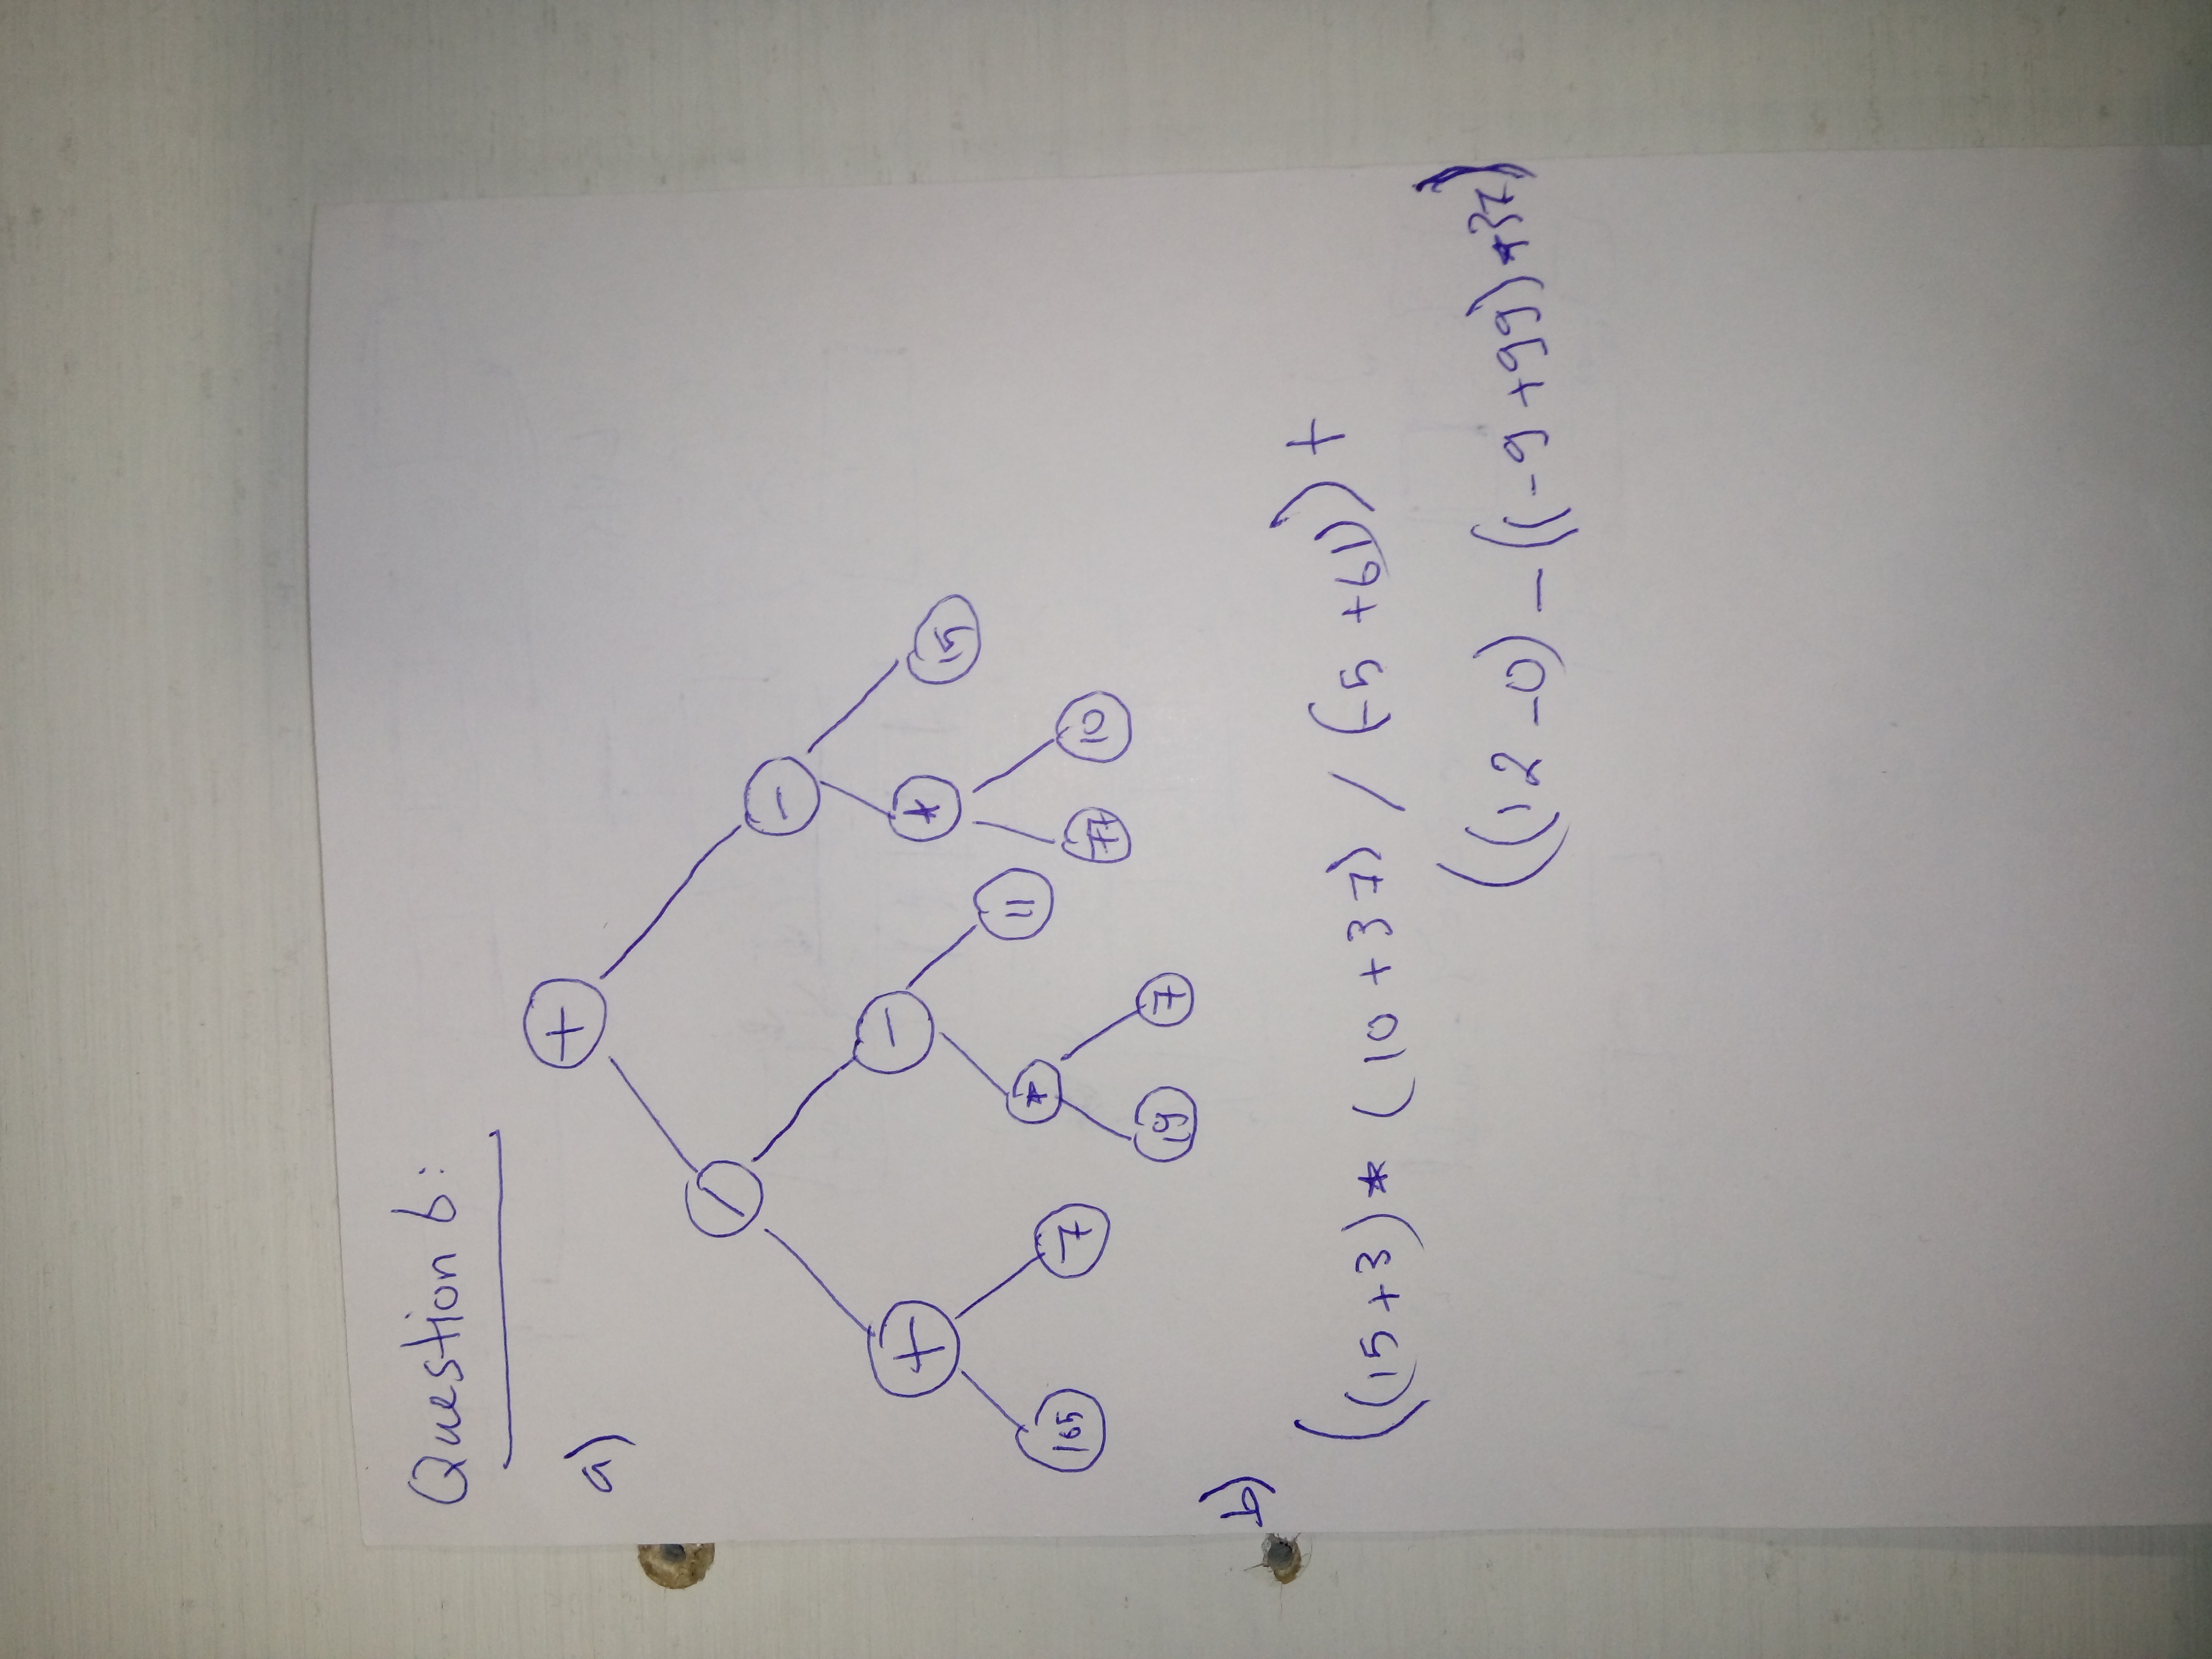 Question 6:
a)
+
/
-
+
-
*
15
165
7
*
11
77
10
19
7
b)
((15+3) * (10+37) / (-5+61)) +
((12-0) - ((-9+99)*37)